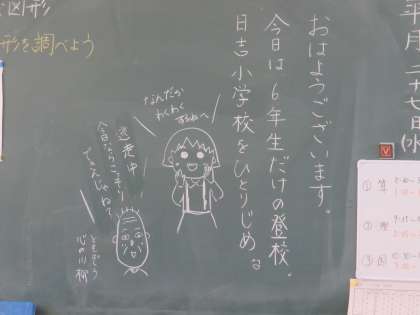 年 月 二十七日(水
おはようございます。
今日は6年生だけの登校。
日吉小学校をひとりじめ。
なんだか
わくわく
するねへ
逃走中
今日ならこっそり
ともぞう
心の川柳
図形
形を調べよう
① 算
② 理
③ 国